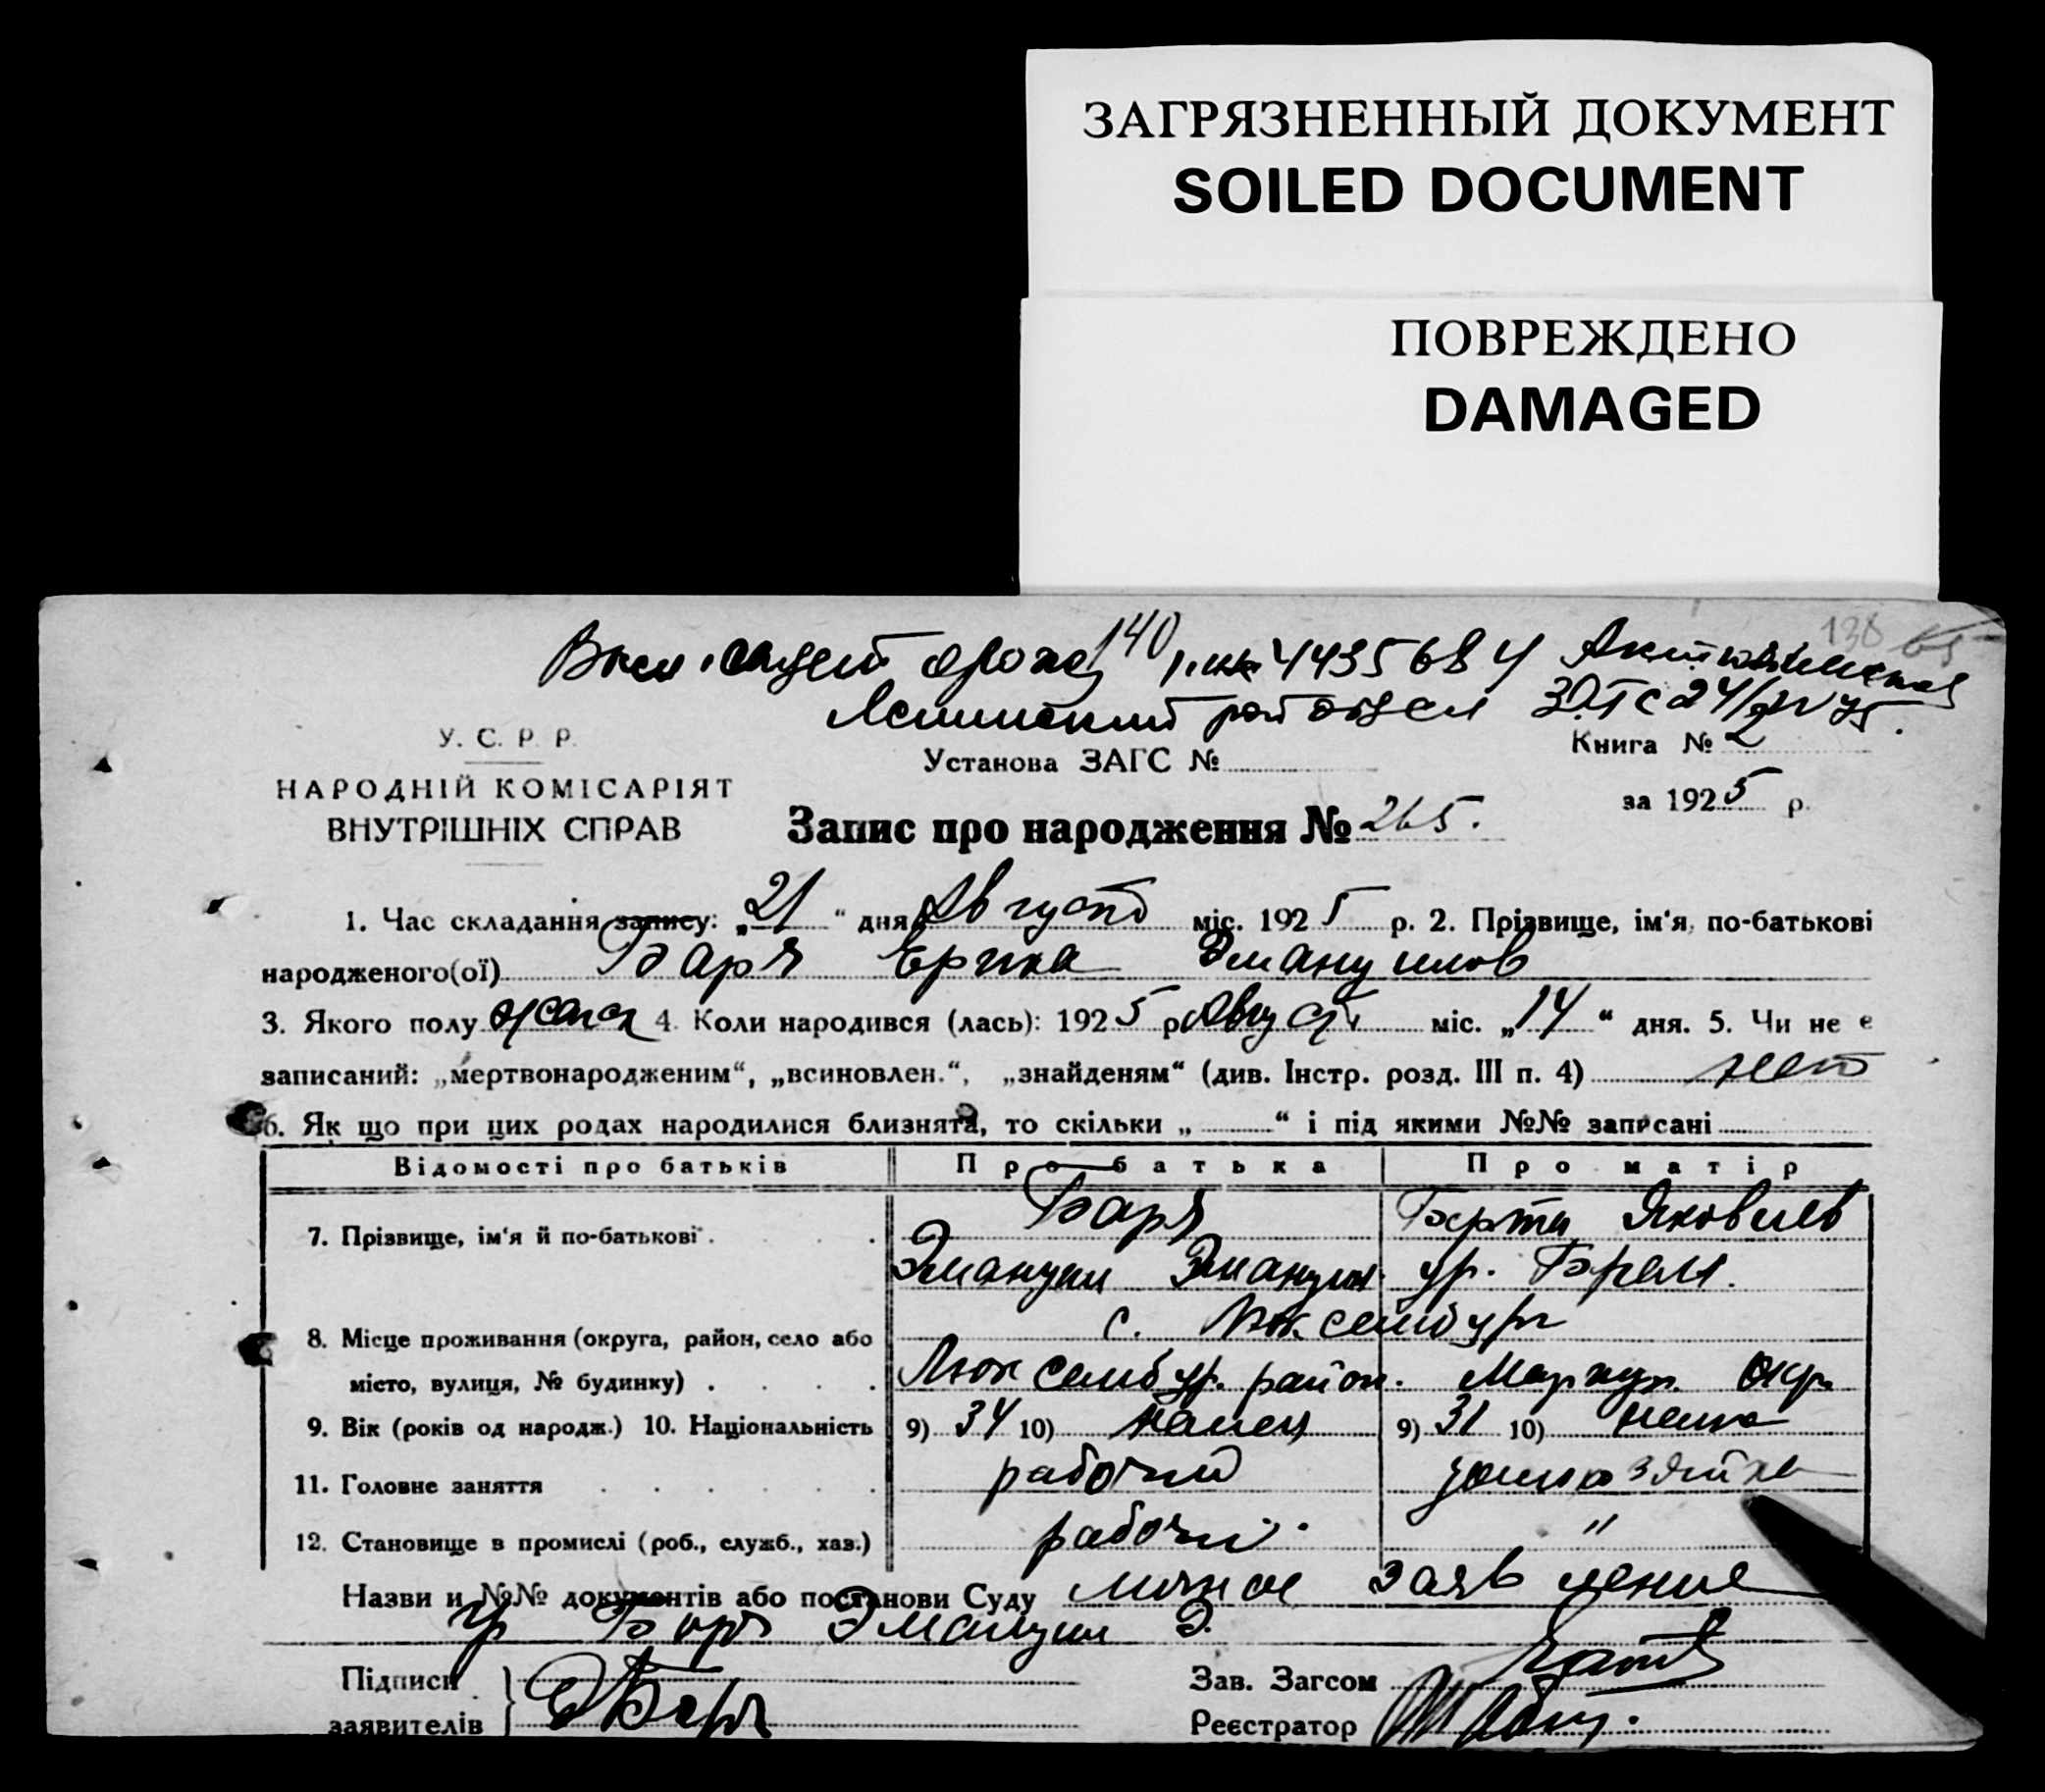 ЗАГРЯЗНЕННЫЙ ДОКУМЕНТ
SOILED DOCUMENT
ПОВРЕЖДЕНО
DAMAGED
138
140 443568 Актюбинская
Ленинский ЗАГС 24/
У. С. Р. Р.
Установа ЗАГС №
Книга № 2
НАРОДНІЙ КОМІСАРІЯТ
ВНУТРІШНІХ СПРАВ
за 1925 р.
Запис про народження № 265.
1. Час складання запису: „21“ дня Августа міс. 1925 р. 2. Прізвище, ім'я, по-батькові
народженого(ої) Барч Ерика Эмануилов
3. Якого полу жен 4. Коли народився (лась): 1925 р. Август міс. „14“ дня. 5. Чи не є
записаний: „мертвонародженим“, „всиновлен.“, „знайденям“ (див. Інстр. розд. III п. 4) нет
6. Як що при цих родах народилися близнята, то скільки „ “ і під якими №№ записані
Відомості про батьків Про батька Про матір
7. Прізвище, ім'я й по-батькові Барч Берта Яковлев
Эмануил Эмануил. ур.
8. Місце проживання (округа, район, село або с. Люксембург
місто, вулиця, № будинку) Люксембург. район. Мариуп. окр.
9. Вік (років од народж.) 10. Національність 9) 34 10) немец 9) 31 10) немка
11. Головне заняття рабочий домохозяйка
12. Становище в промислі (роб., служб., хаз.) рабочий "
Назви и №№ документів або постанови Суду личное заявление
гр Барч Эмануил Э.
Підписи Зав. Загсом
заявителів Реєстратор